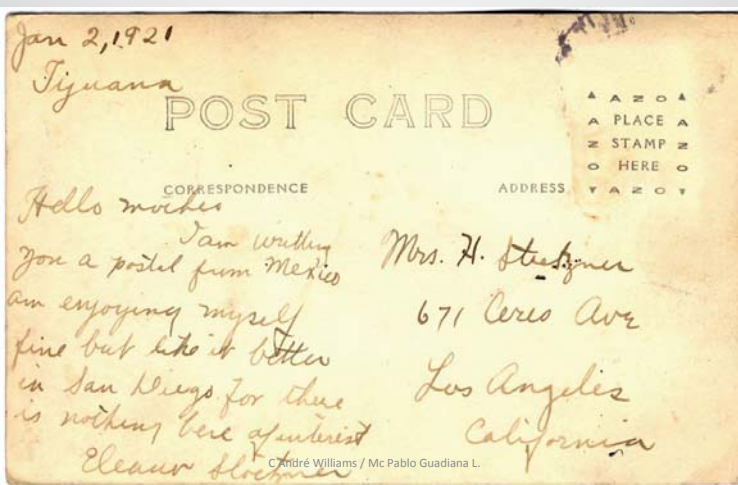 Jan 2, 1921
Tijuana
POST CARD
▲ AZO ▲
A PLACE A
Z STAMP Z
O HERE O
▼ AZO ▼
CORRESPONDENCE
ADDRESS
Hello mother
I am writting
you a postal from Mexico
am enjoying myself
fine but like it better
in San Diego for there
is nothing here of interest
Eleanor
Mrs. H.
671 Ceres Ave
Los Angeles
California
C André Williams / Mc Pablo Guadiana L.